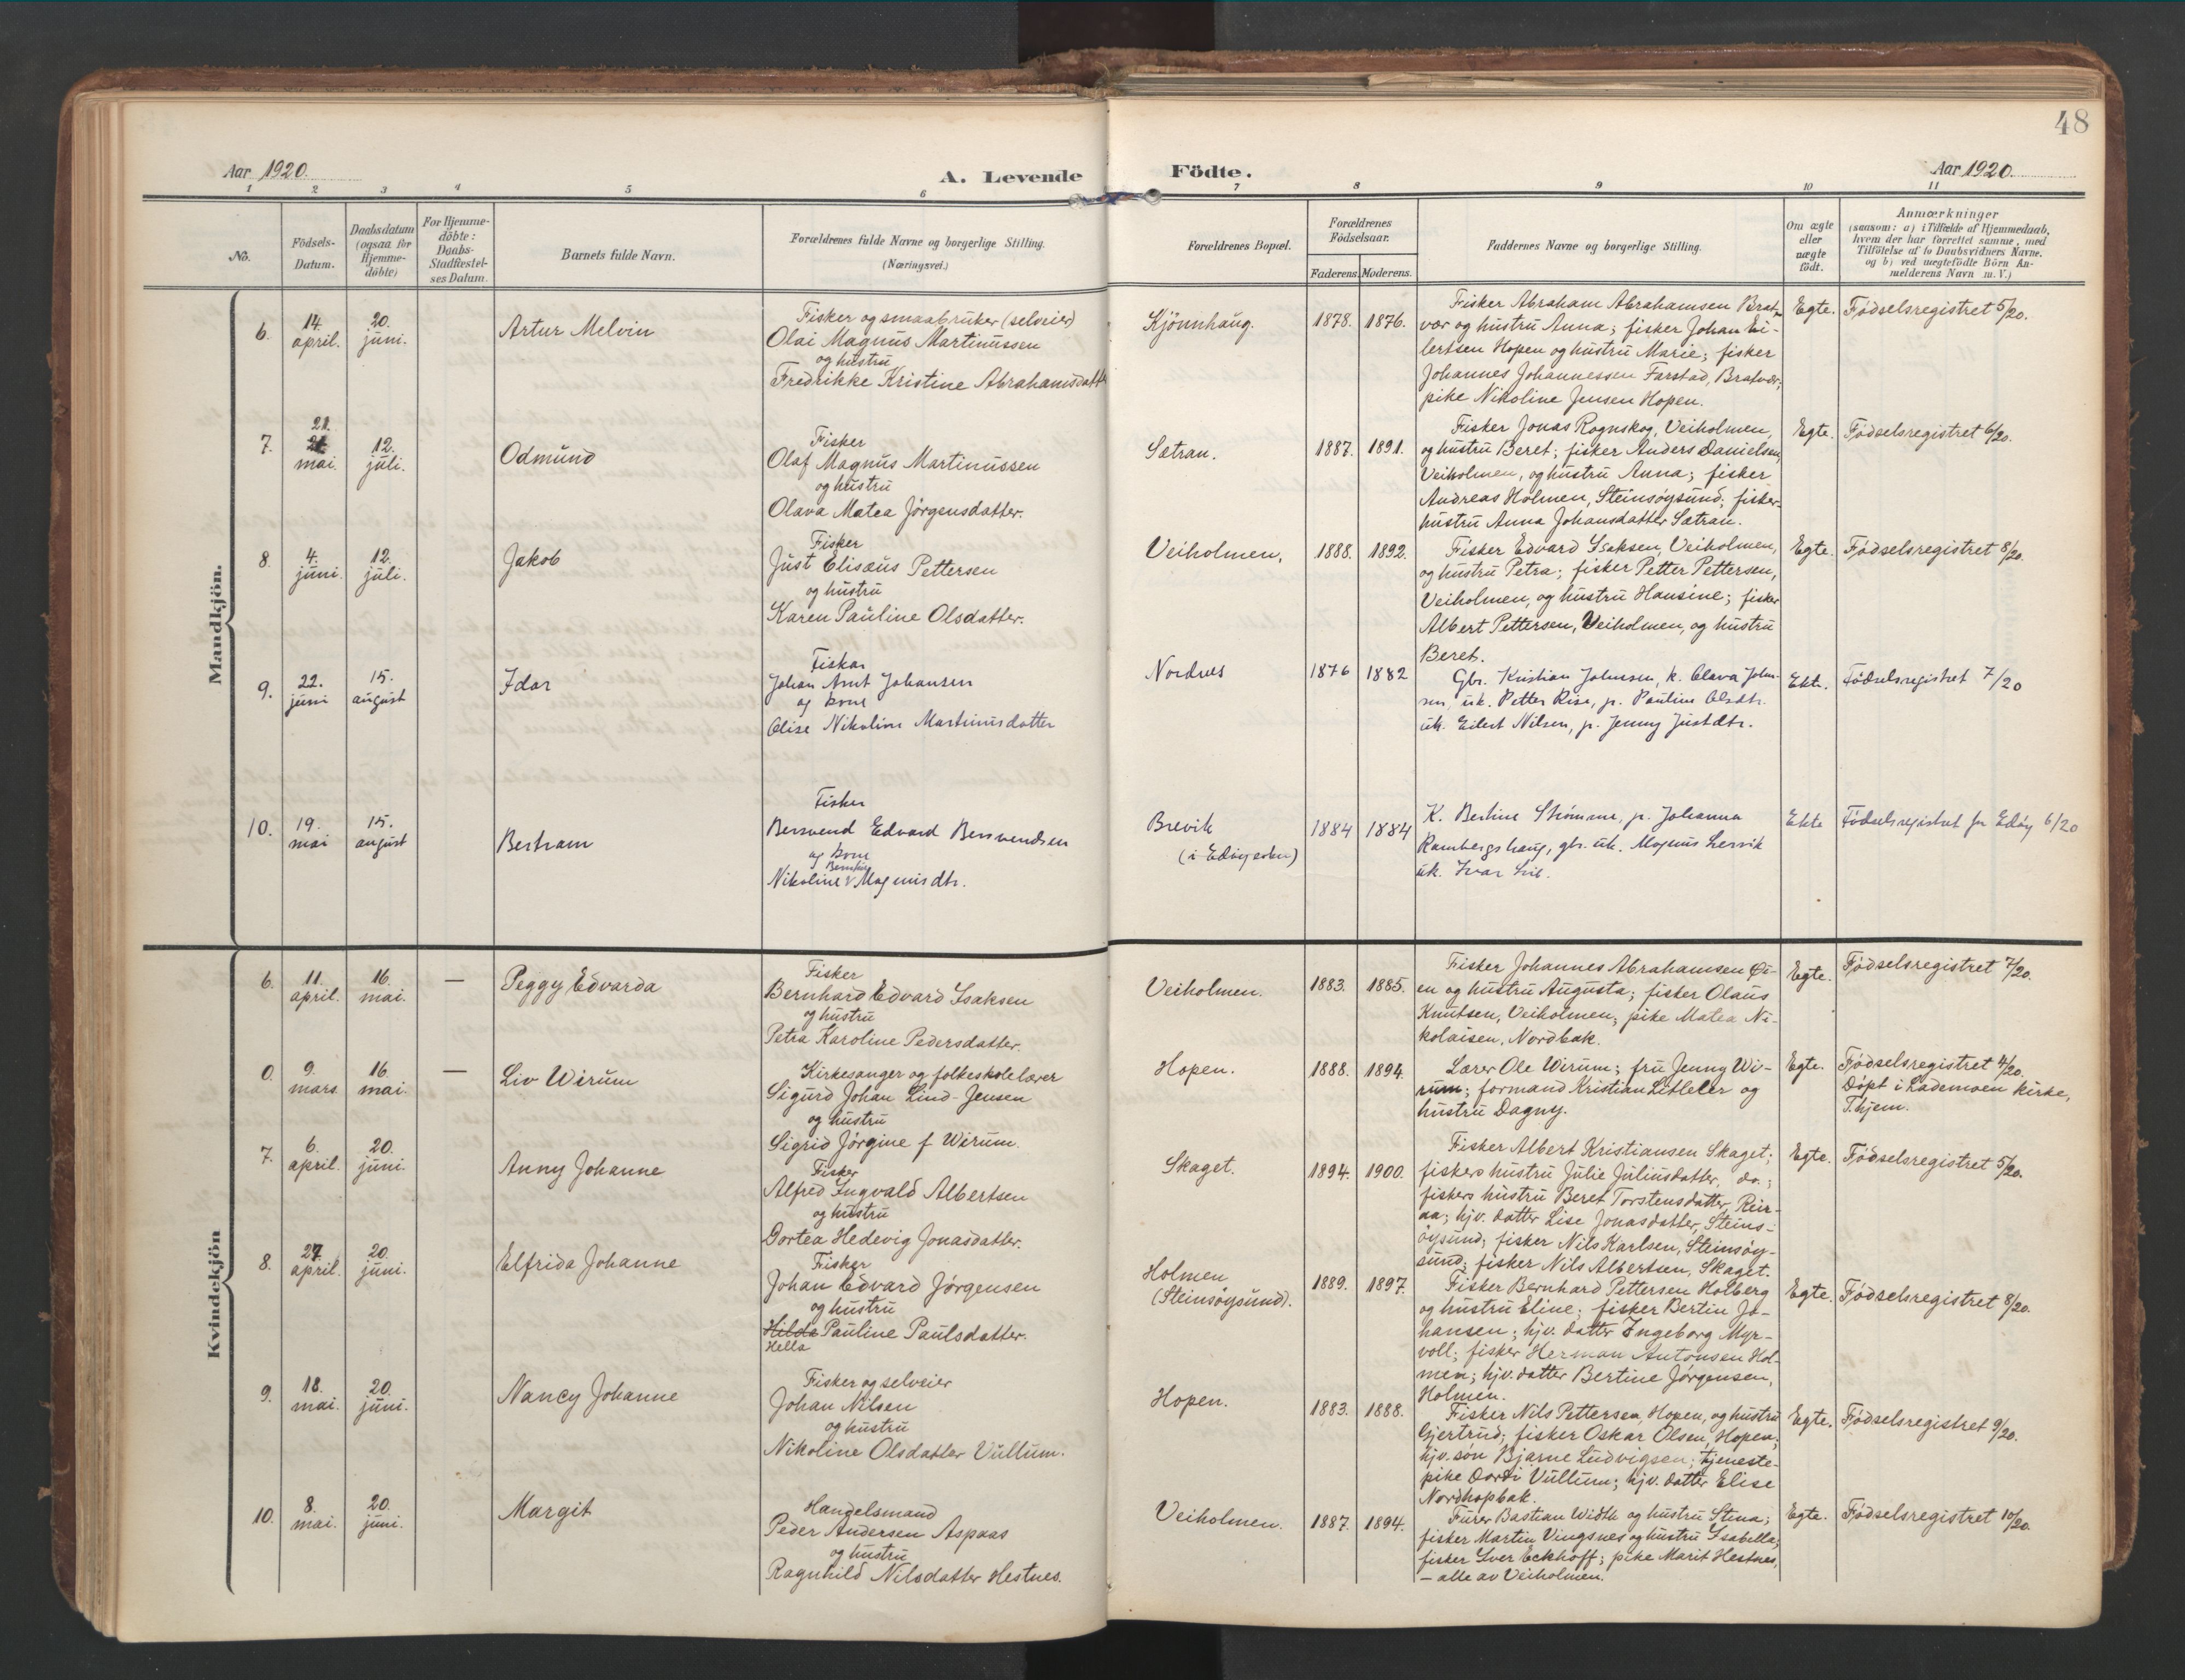 48
Aar 1920.
A. Levende Födte.
Aar 1920.
1 2 3 4 5 6 7 8 9 10 11
No.
Födsels-
Datum.
Daabsdatum
(ogsaa for
Hjemme-
döbte)
For Hjemme-
döbte:
Daabs-
Stadfæstel-
ses Datum.
Barnets fulde Navn.
Forældrenes fulde Navne og borgerlige Stilling.
(Næringsvei.)
Forældrenes Bopæl.
Forældrenes
Födselsaar.
Faderens. Moderens.
Faddernes Navne og borgerlige Stilling.
Om ægte
eller
uægte
födt.
Anmærkninger
(saasom: a) i Tilfælde af Hjemmedaab,
hvem der har forrettet samme, med
Tilföielse af to Daabsvidners Navne,
og b) ved uægtefödte Börn An-
melderens Navn m. V.)
Mandkjön.
6.
14.
april.
20.
juni.
Artur Melvin
Fisker og smaabruker (selveier)
Olai Magnus Martinussen
og hustru
Fredrikke Kristine Abrahamsdatt
Kjønnhaug.
1878. 1876.
Fisker Abraham Abrahamsen Brat-
vær og hustru Anna; fisker Johan Ei-
lertsen Hopen og hustru Marie; fisker
Johannes Johannessen Farstad, Bratvær;
pike Nikoline Jensen Hopen.
Egte.
Fødselsregistret 5/20.
7.
21.
mai.
12.
juli.
Odmund
Fisker
Olaf Magnus Martinussen
og hustru
Olava Matea Jørgensdatter.
Sætran.
1887. 1891.
Fisker Jonas Rognskog, Veiholmen,
og hustru Beret; fisker Anders Danielsen,
Veiholmen, og hustru Anna; fisker
Andreas Holmen, Steinsøysund; fisker-
hustru Anna Johansdatter Sætran.
Egte.
Fødselsregistret 6/20.
8.
4.
juni.
12.
juli.
Jakob
Fisker
Just Elisæus Pettersen
og hustru
Karen Pauline Olsdatter.
Veiholmen,
1888. 1892.
Fisker Edvard Isaksen, Veiholmen,
og hustru Petra; fisker Petter Pettersen,
Veiholmen, og hustru Hansine; fisker
Albert Pettersen, Veiholmen, og hustru
Beret.
Egte.
Fødselsregistret 8/20.
9.
22.
juni
15.
august
Idar
Fisker
Johan Arnt Johansen
og kone
Olise Nikoline Martinusdatter
Nordnes
1876 1882
Gbr. Kristian Johnsen, k. Olava John-
sen, uk. Petter Rise, p. Pauline Olsdtr.
uk. Eilert Nilsen, p. Jenny Justdtr.
Ekte.
Fødselsregistret 7/20
10.
19.
mai
15.
august
Bertram
Fisker
Bersvend Edvard Bersvendsen
og kone
Nikoline Magnusdtr.
Brevik
1884 1884
K. Bertine Strømme, p. Johanna
Rambergshaug, gbr. uk. Magnus Lervik
uk. Ivar
Ekte
Fødselsregistret for Edøy 6/20
Kvindekjön
6.
11.
april.
16.
mai.
—
Peggy Edvarda
Fisker
Bernhard Edvard Isaksen
og hustru
Petra Karoline Pedersdatter.
Veiholmen.
1883. 1885.
Fisker Johannes Abrahamsen Øi-
en og hustru Augusta; fisker Olaus
Knutsen, Veiholmen; pike Matea Ni-
kolaisen, Nordbak.
Egte.
Fødselsregistret 7/20.
0.
9.
mars.
16.
mai.
—
Liv Wirum
Kirkesanger og folkeskolelærer
Sigurd Johan Lind-Jensen
og hustru
Sigrid Jørgine f Wirum.
Hopen.
1888. 1894.
Lærer Ole Wirum; fru Jenny Wi-
rum; formand Kristian Litleler og
hustru Dagny.
Egte.
Fødselsregistret 4/20.
Døpt i Lademoen kirke,
T.hjem.
7.
6.
april.
20.
juni.
Anny Johanne
Fisker
Alfred Ingvald Albertsen
og hustru
Dortea Hedevig Jonasdatter.
Skaget.
1894. 1900.
Fisker Albert Kristiansen Skaget;
fiskers hustru Julie Juliusdatter, do.;
fiskers hustru Beret Torstensdatter, Reir-
aa; hjv. datter Lise Jonasdatter, Steins-
øysund; fisker Nils Karlsen, Steinsøy-
sund; fisker Nils Albertsen, Skaget.
Egte.
Fødselsregistret 5/20.
8.
27.
april.
20.
juni.
Elfrida Johanne
Fisker
Johan Edvard Jørgensen
og hustru
Hilda Pauline Paulsdatter.
Hella
Holmen
(Steinsøysund).
1889. 1897.
Fisker Bernhard Pettersen Holberg
og hustru Eline; fisker Bertin Jo-
hansen; hjv. datter Ingeborg Myr-
voll; fisker Herman Antonsen Hol-
men; hjv. datter Bertine Jørgensen,
Holmen.
Egte.
Fødselsregistret 8/20.
9.
18.
mai.
20.
juni.
Nancy Johanne
Fisker og selveier
Johan Nilsen
og hustru
Nikoline Olsdatter Vullum.
Hopen.
1883. 1888.
Fisker Nils Pettersen, Hopen, og hustru
Gjertrud; fisker Oskar Olsen, Hopen;
hjv. søn Bjarne Ludvigsen; tjeneste-
pike Dordi Vullum; hjv. datter Elise
Nordhopbak.
Egte.
Fødselsregistret 9/20.
10.
8.
mai.
20.
juni.
Margit
Handelsmand
Peder Andersen Aspaas
og hustru
Ragnhild Nilsdatter Hestnes.
Veiholmen.
1887. 1894.
Furer Bastian Width og hustru Stina;
fisker Martin Vingsnes og hustru Isabella;
fisker Iver Eckhoff; pike Marit Hestnes,
— alle av Veiholmen.
Egte.
Fødselsregistret 10/20.